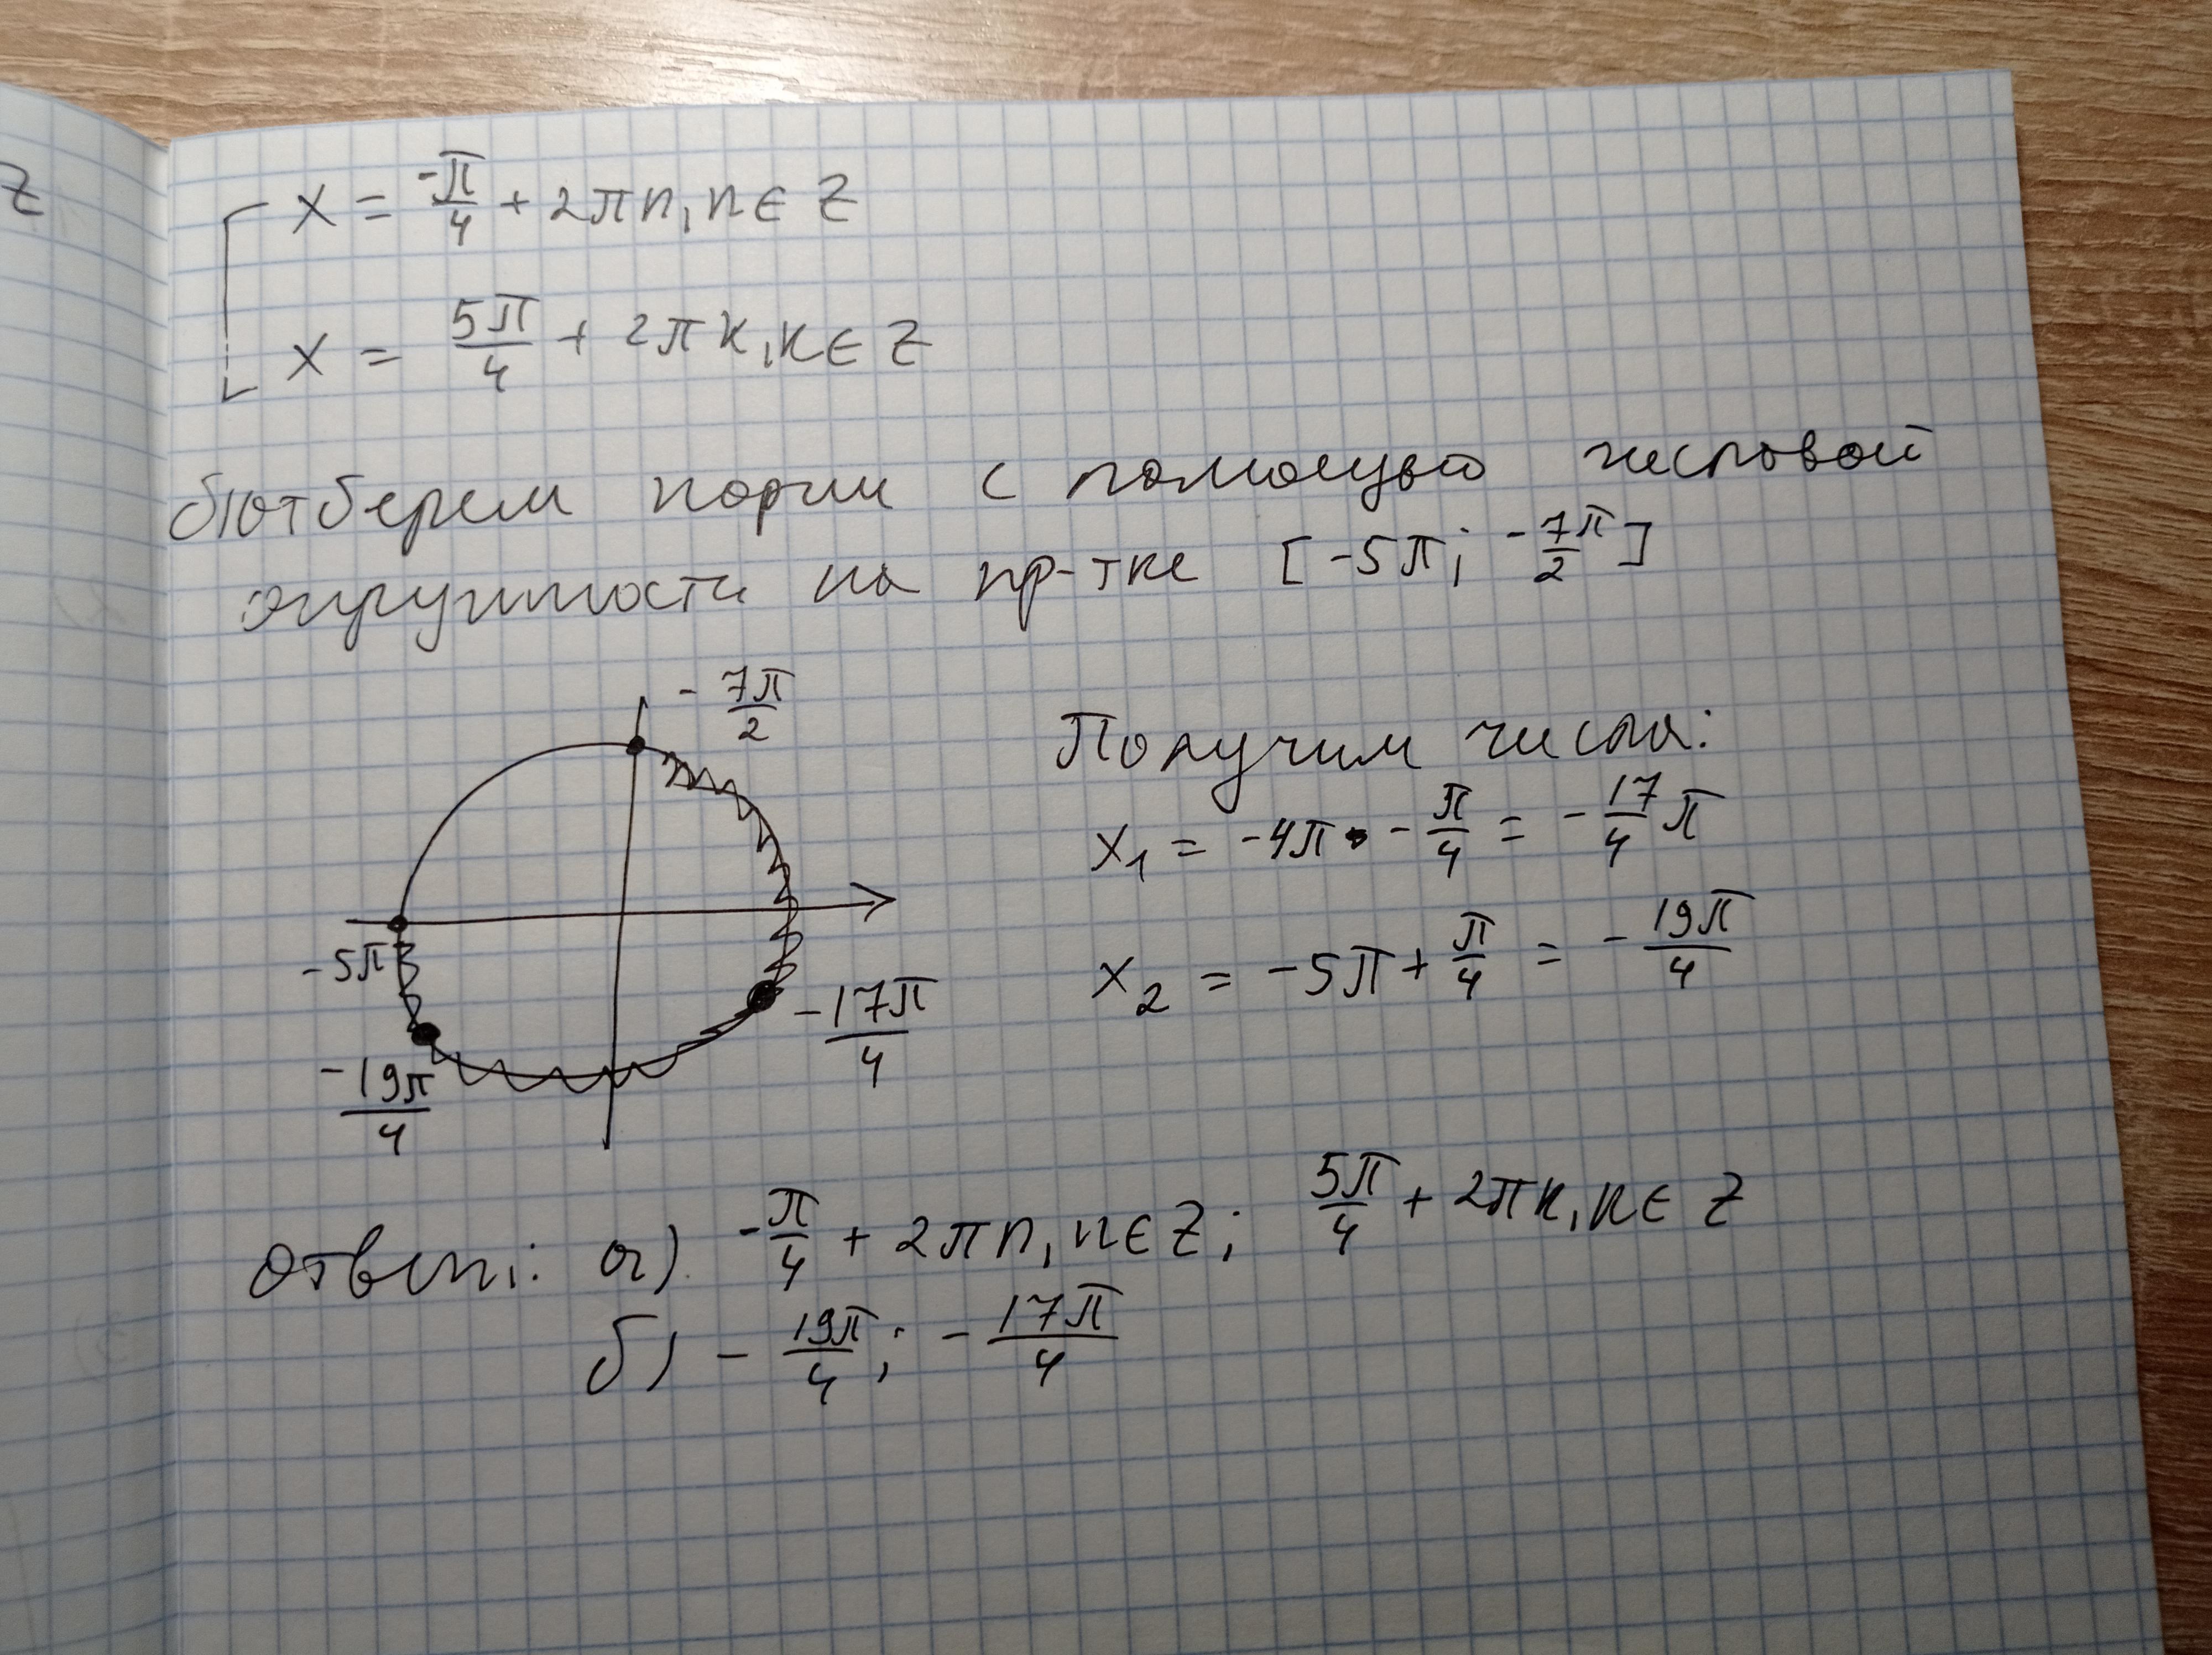 Z
x = -π/4 + 2πn, n ∈ Z
x = 5π/4 + 2πk, k ∈ Z
б) отберем корни с помощью числовой
окружности на пр-тке [-5π; -7π/2]
-7π/2
-5π
-19π/4
-17π/4
Получим числа:
x₁ = -4π - π/4 = -17/4 π
x₂ = -5π + π/4 = -19π/4
Ответ: а) -π/4 + 2πn, n ∈ Z; 5π/4 + 2πk, k ∈ Z
б) -19π/4; -17π/4